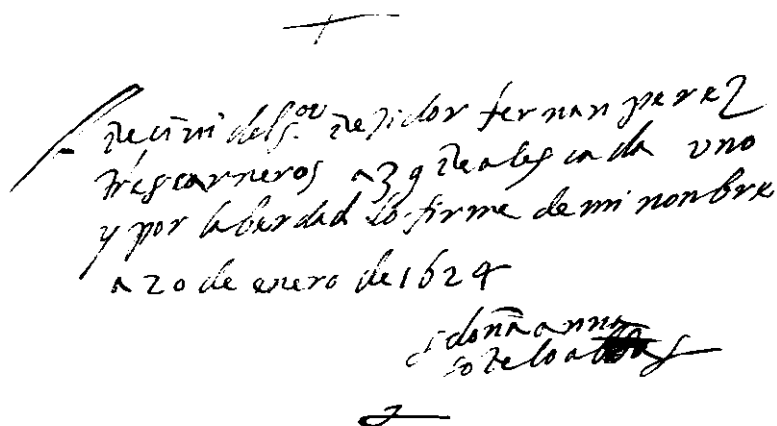 Recivi del s.or Regidor fernan perez
tres carneros a 39 Reales cada uno
y por la berdad lo firme de mi nonbre
a 20 de enero de 1624
doña anna
sotelo